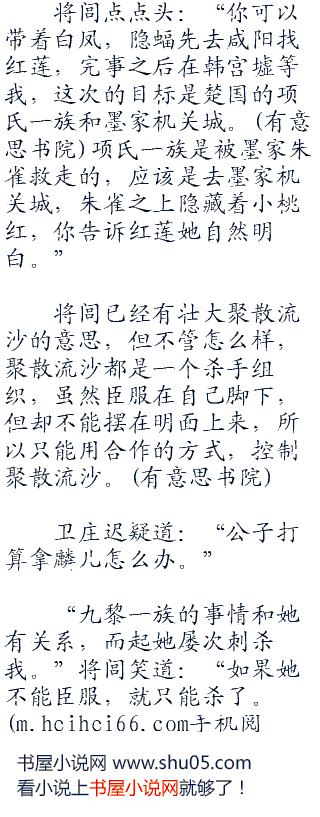 将闾点点头：“你可以
带着白凤，隐蝠先去咸阳找
红莲，完事之后在韩宫墟等
我，这次的目标是楚国的项
氏一族和墨家机关城。(有意
思书院)项氏一族是被墨家朱
雀救走的，应该是去墨家机
关城，朱雀之上隐藏着小桃
红，你告诉红莲她自然明
白。”
将闾已经有壮大聚散流
沙的意思，但不管怎么样，
聚散流沙都是一个杀手组
织，虽然臣服在自己脚下，
但却不能摆在明面上来，所
以只能用合作的方式，控制
聚散流沙。(有意思书院)
卫庄迟疑道：“公子打
算拿麟儿怎么办。”
“九黎一族的事情和她
有关系，而起她屡次刺杀
我。”将闾笑道：“如果她
不能臣服，就只能杀了。
(m.hcihci66.com手机阅
书屋小说网 www.shu05.com
看小说上书屋小说网就够了！